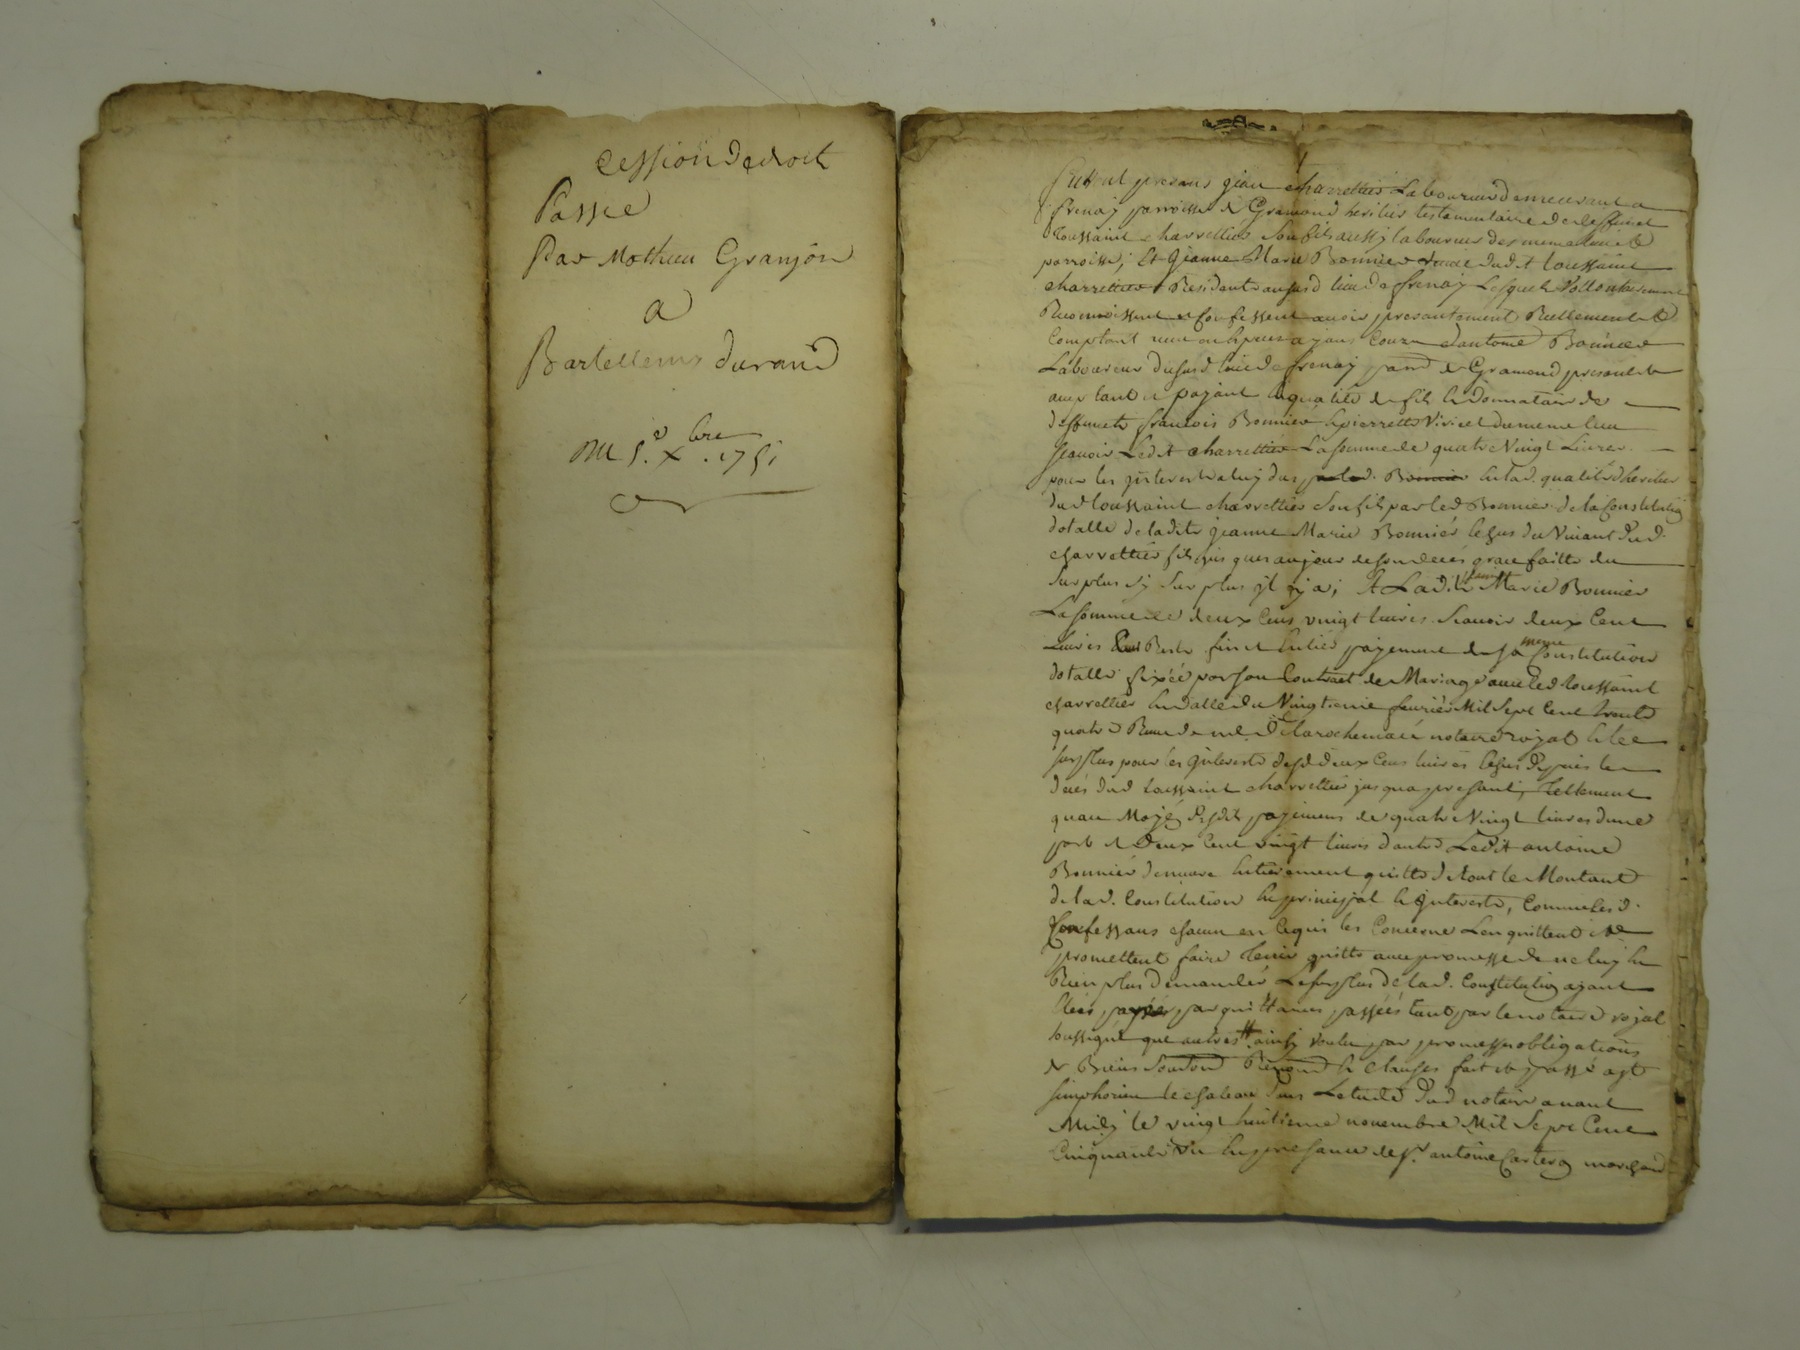 Cession de droit
Passée
Par Mathieu Granjon
a
Bartellemy durand
Du 5.e Xbre 1751
furent presens jean charrettier Laboureur demeurant a
frenay parroisse de Gramond heritier testamentaire de deffunct
toussaint charrettier son fils aussy laboureur des meme lieu et
parroisse, Et jeanne Marie Bonnier veuve dudit toussaint
charrettier Residente au susd lieu de frenay Lesquels Vollontairement
Reconnoissent et confessent avoir presantement Reellement et
Comptant ayans Cours dantoine Bonnier
Laboureur du susd lieu de frenay parr de Gramond present et
acceptant et payant en qualité de fils et donnataire de
deffuncts francois Bonnier et pierrette Viricel du meme lieu
scavoir Ledit charrettier La somme de quatre Vingt Livres
pour les jnterets a luy dus par led. Bonnier en lad. qualité d'heritier
dud toussaint charrettier son fils par led Bonnier de la Constitution
dotalle de ladite jeanne Marie Bonnier du Vivant dud.
charrettier fils jusques au jour de son decés grace faitte du
surplus sy surplus yl y a; Et Ladite jeanne Marie Bonnier
La somme de deux Cens vingt livres. Scavoir deux Cent
Livres Reste fin et Entier payement de sa meme Constitution
dotalle fixéé par son Contract de Mariage avec led toussaint
charrettier en datte du Vingtieme fevrier Mil Sept Cent trente
quatre Receu de me notaire royal et le
surplus pour les jnterets desd deux Cens livres Depuis le
decés dud toussaint charrettier jusqua presant, tellement
quau Moyen desdits payemens de quatre Vingt livres dune
part et Deux Cent vingt livres dautre Ledit antoine
Bonnier demeure Entierement quitte de tout le Montant
de lad. Constitution en principal et jnterets, Comme lesd.
Confessans chacun en ce qui les Concerne Len quittent et
promettent faire tenir quitte avec promesse de ne luy en
Rien plus demander Le surplus de lad. Constitution ayant
Etéé payéé par quittances passéés tant par le notaire royal
soussigné que autres ainsy voulu par promesse obligations
de Biens soumissions Renonciations et Clauses fait et passé a St
simphorien le chateau dans Letude dud notaire avant
Midy le vingt huitieme novembre Mil Sept Cent
Cinquante en presance de sr. antoine marchand